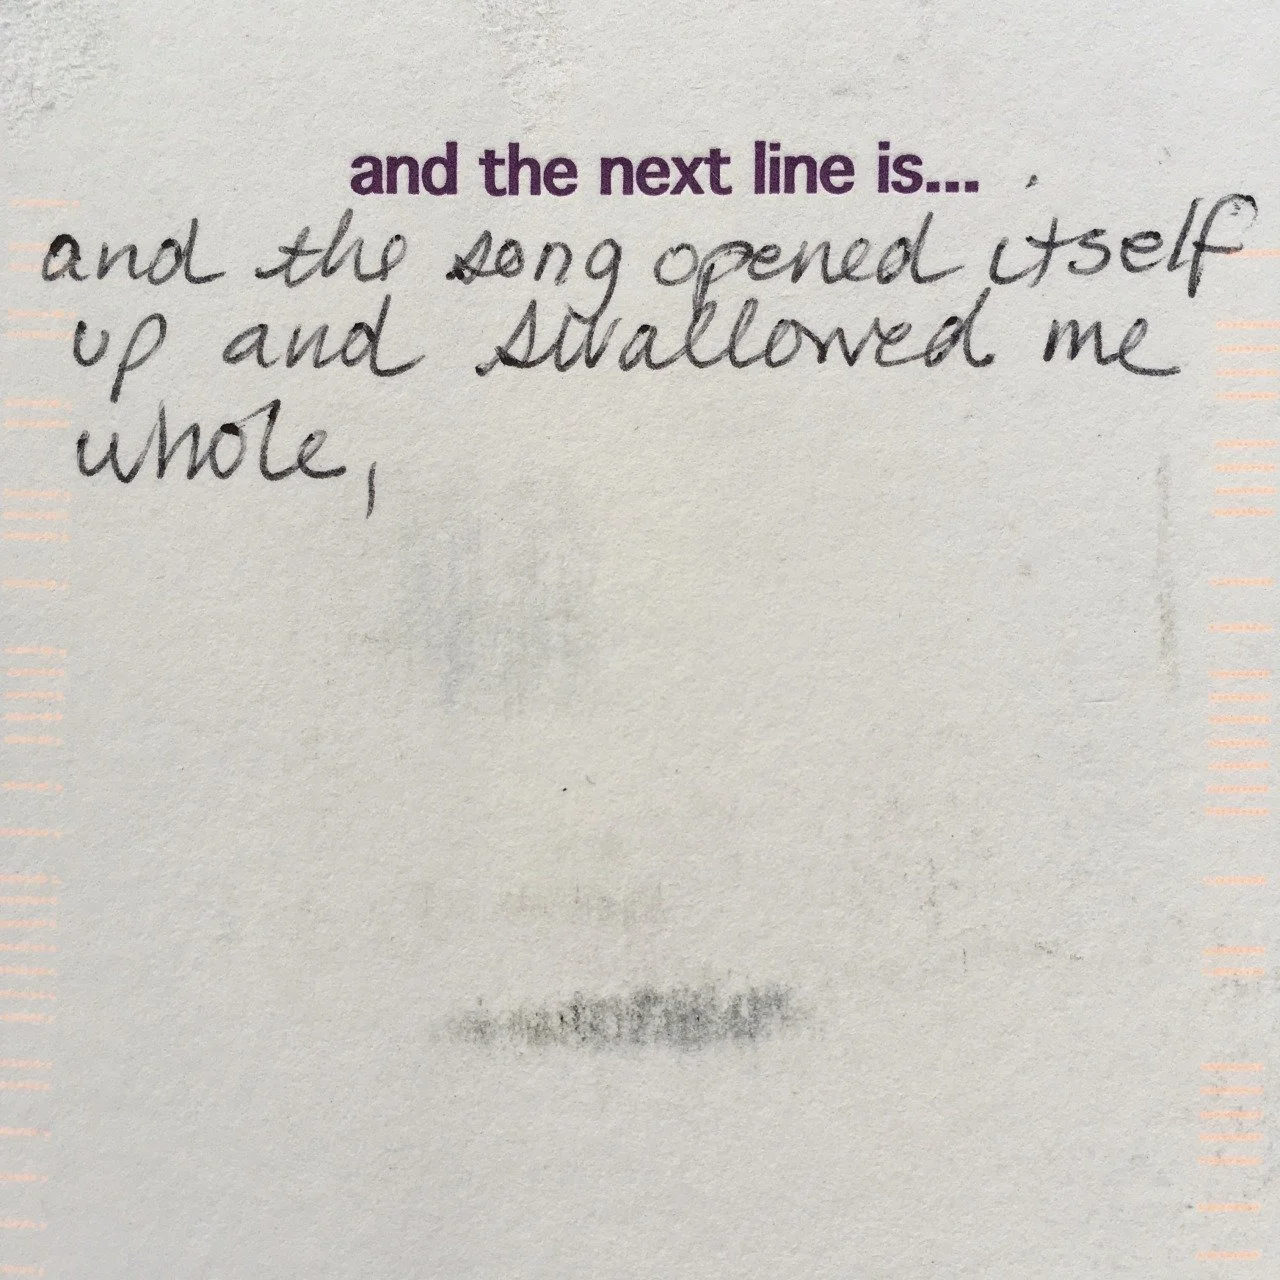 and the next line is...
and the song opened itself
up and swallowed me
whole,